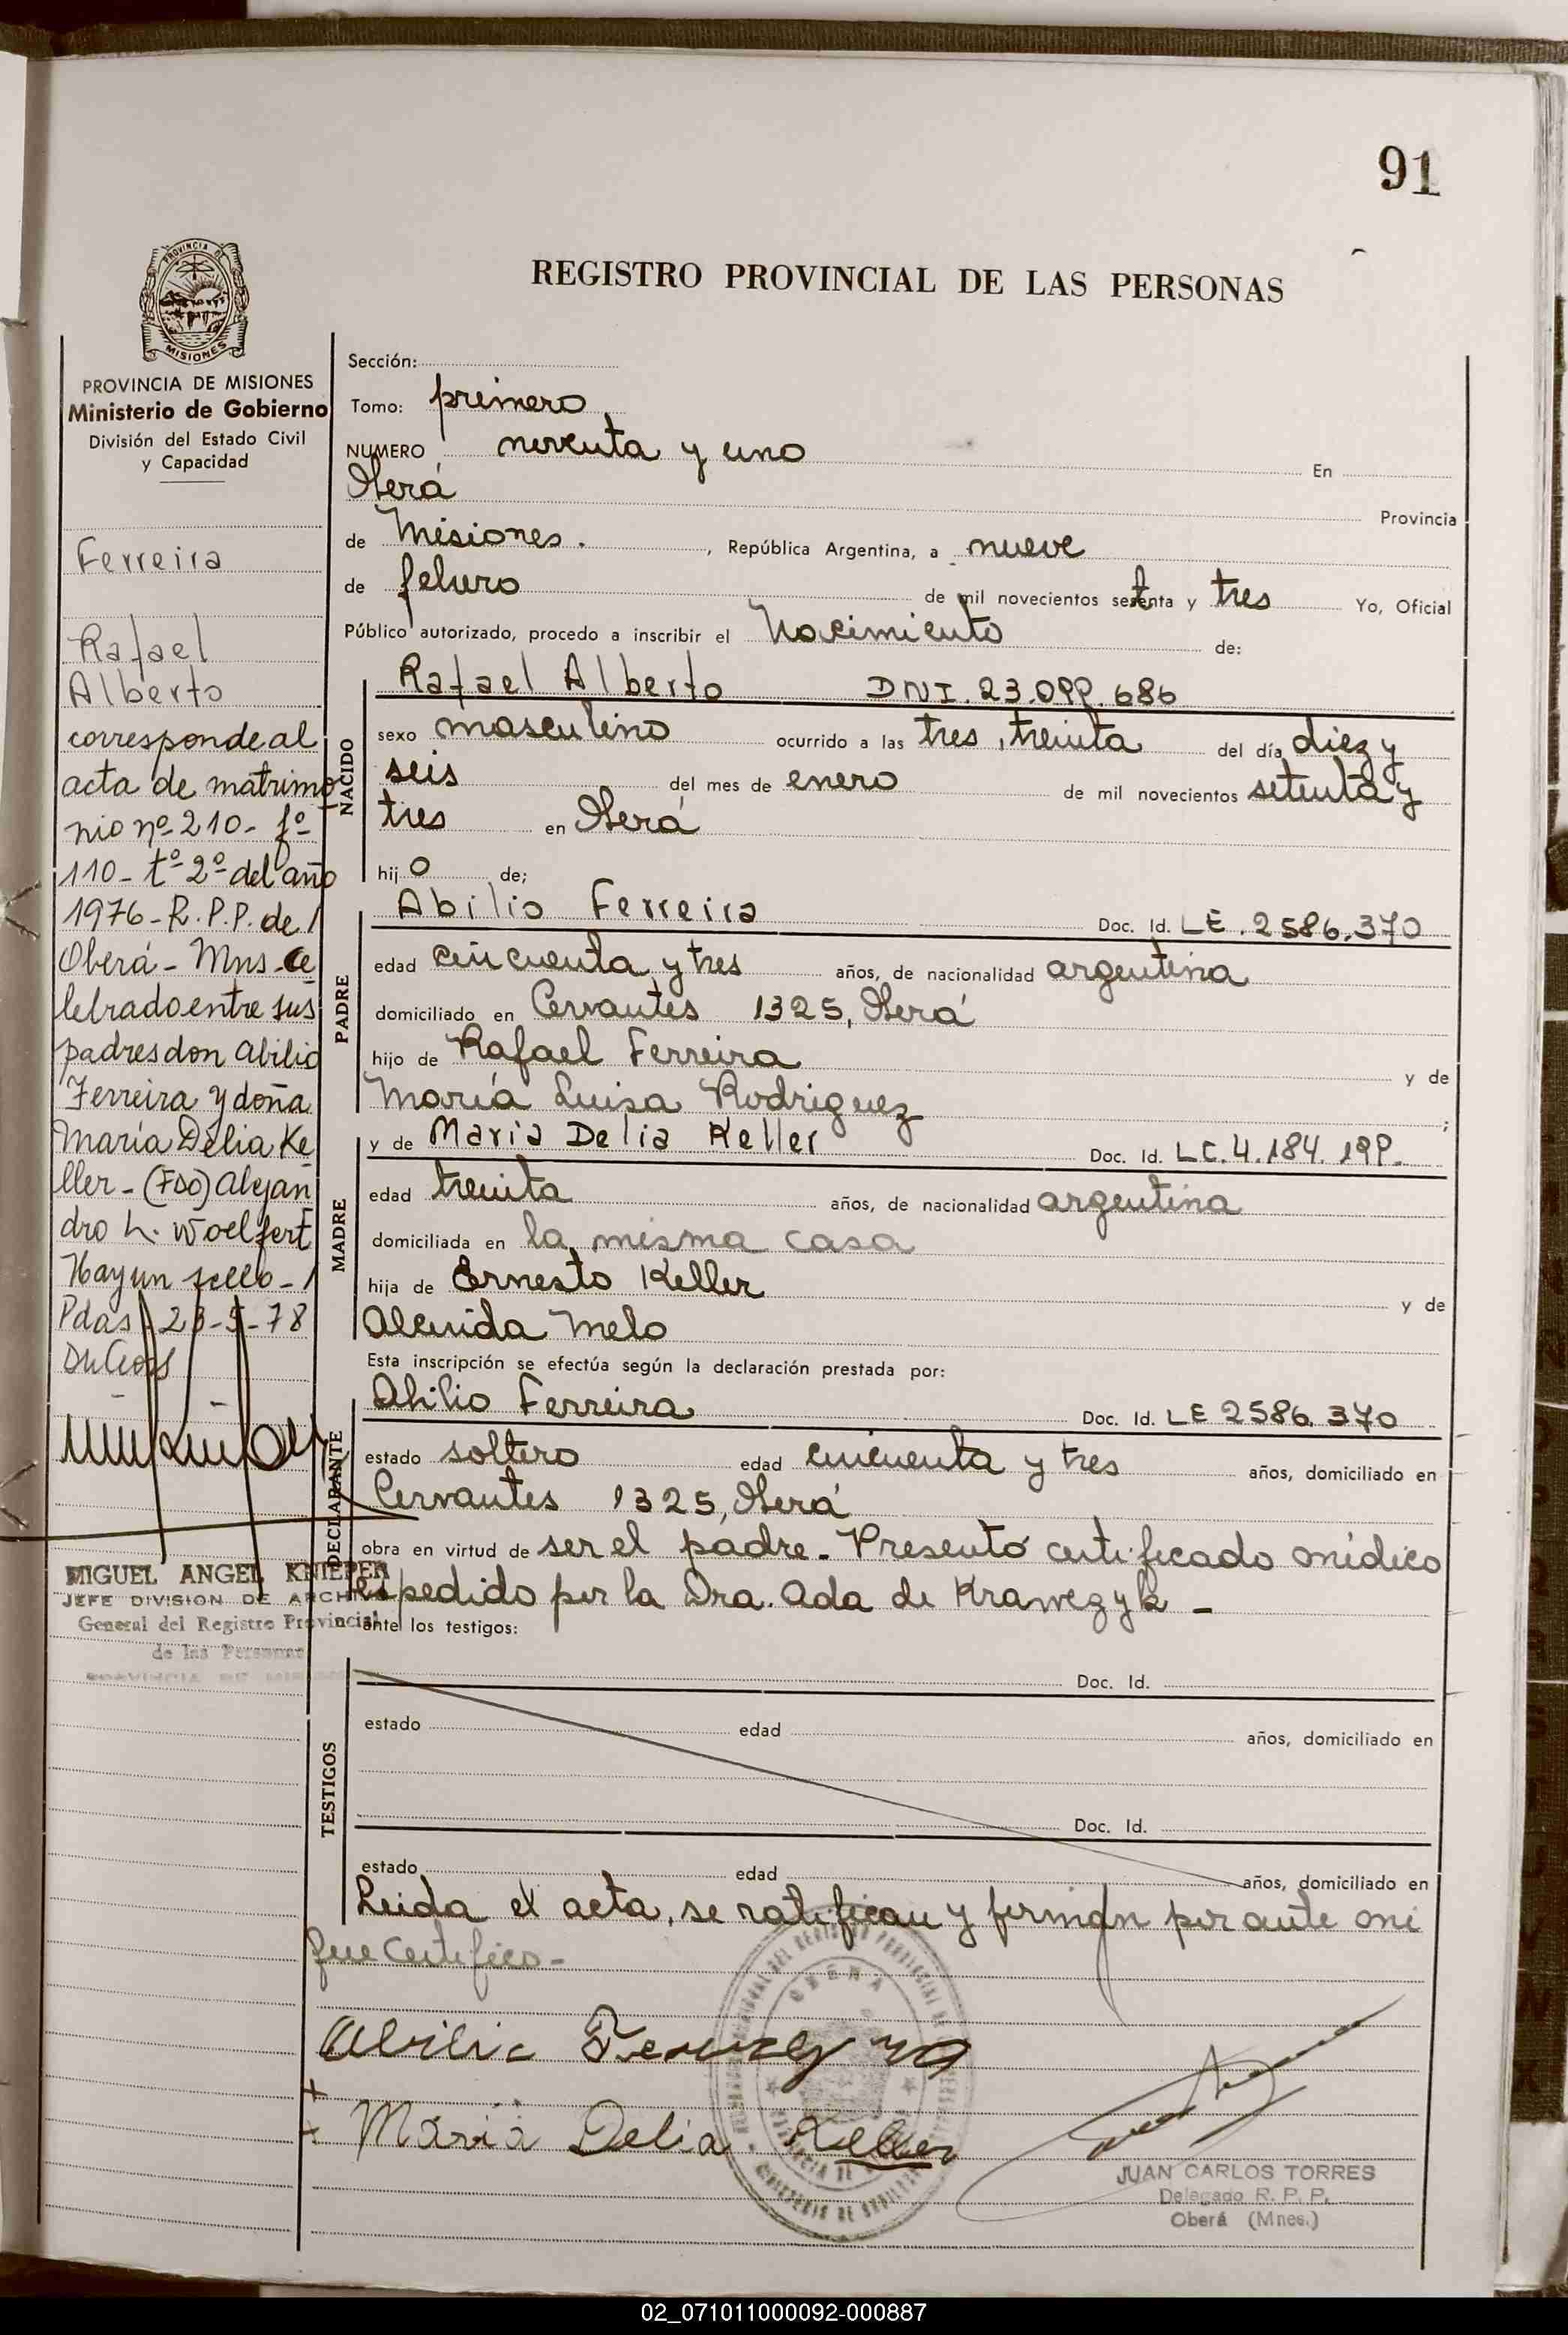 91
PROVINCIA DE
MISIONES
REGISTRO PROVINCIAL DE LAS PERSONAS
PROVINCIA DE MISIONES
Ministerio de Gobierno
División del Estado Civil
y Capacidad
Ferreira
Rafael
Alberto
corresponde al
acta de matrimo
nio nº 210- fº
110- tº 2º del año
1976- R.P.P. de /
Oberá- Mns- Ce
lebrado entre sus
padres don Abilio
Ferreira y doña
María Delia Ke
ller- (Fdo) Alejan
dro L. Woelfert
Hay un sello- /
Pdas 23-5-78
MIGUEL ANGEL KNIEPER
JEFE DIVISION DE ARCHIVO
General del Registro Provincial
de las Personas
Sección:
Tomo: primero
NUMERO noventa y uno En
Oberá Provincia
de Misiones. , República Argentina, a nueve
de febrero de mil novecientos setenta y tres Yo, Oficial
Público autorizado, procedo a inscribir el Nacimiento de:
NACIDO
Rafael Alberto DNI. 23.099.686
sexo masculino ocurrido a las tres, treinta del día diez y
seis del mes de enero de mil novecientos setenta y
tres en Oberá
hijo de;
PADRE
Abilio Ferreira Doc. Id. LE. 2586.370
edad cincuenta y tres años, de nacionalidad argentina
domiciliado en Cervantes 1325, Oberá
hijo de Rafael Ferreira y de
María Luisa Rodriguez ;
MADRE
y de Maria Delia Keller Doc. Id. LC. 4.184.199.
edad treinta años, de nacionalidad argentina
domiciliada en la misma casa
hija de Ernesto Keller y de
Alenida Melo
Esta inscripción se efectúa según la declaración prestada por:
DECLARANTE
Abilio Ferreira Doc. Id. LE 2586.370
estado soltero edad cincuenta y tres años, domiciliado en
Cervantes 1325, Oberá
obra en virtud de ser el padre. Presentó certificado médico
expedido por la Dra. Ada de Krawczyk -
ante los testigos:
TESTIGOS
Doc. Id.
estado edad años, domiciliado en
Doc. Id.
estado edad años, domiciliado en
Leida el acta, se ratifican y firman por ante mi
que certifico-
Abilio
Maria Delia Keller
OBERA
JUAN CARLOS TORRES
Delegado R. P. P.
Oberá (Mnes.)
02_071011000092-000887